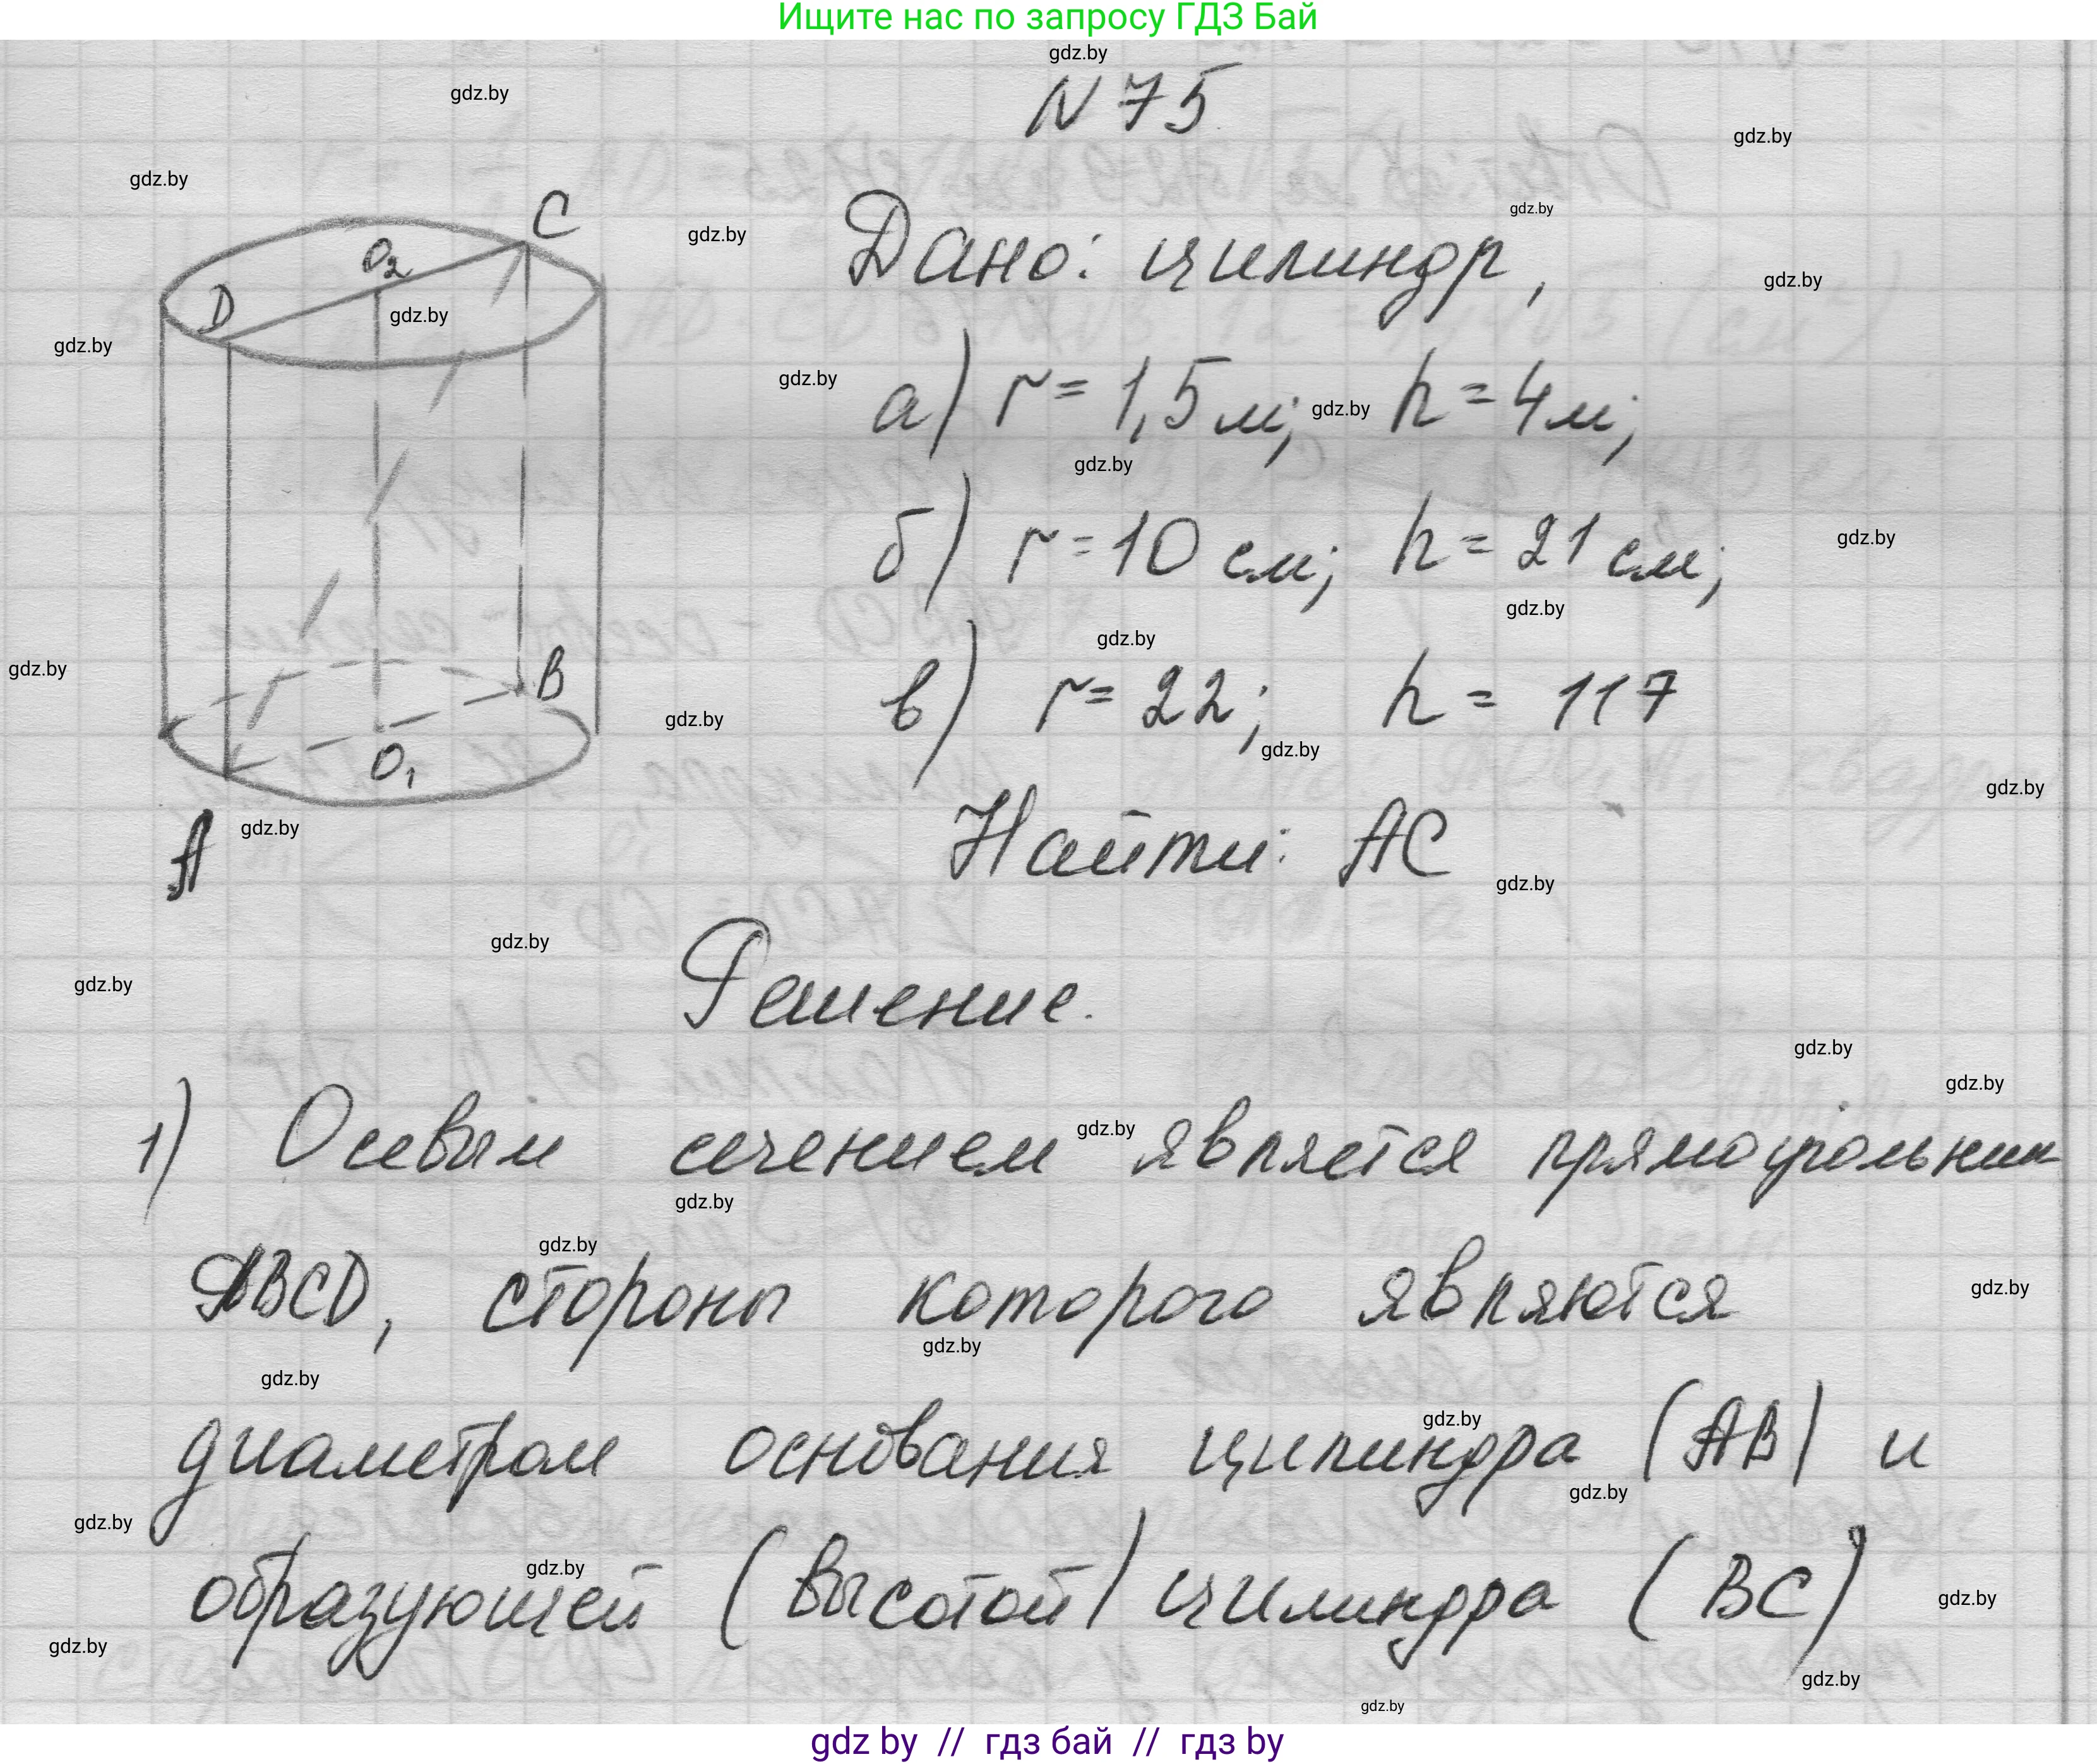 Ищите нас по запросу ГДЗ Бай
gdz.by
gdz.by
N 75
gdz.by
gdz.by
C
gdz.by
gdz.by
O2
Дано: цилиндр,
gdz.by
D
gdz.by
gdz.by
gdz.by
а) r = 1,5 м; gdz.by h = 4 м;
gdz.by
б) r = 10 см; h = 21 см;
gdz.by
gdz.by
gdz.by
gdz.by
B
в) r = 22; h = 117
gdz.by
gdz.by
O1
gdz.by
A
gdz.by
Найти: AC
gdz.by
gdz.by
gdz.by
Решение.
gdz.by
gdz.by
1) Осевым сечением gdz.by является прямоугольник
gdz.by
gdz.by
ABCD, стороны которого являются
gdz.by
gdz.by
gdz.by
gdz.by
диаметром основания цилиндра (AB) и
gdz.by
gdz.by
gdz.by
образующей (высотой) цилиндра (BC)
gdz.by
gdz.by
gdz.by
gdz.by
gdz by // гдз бай // гдз by